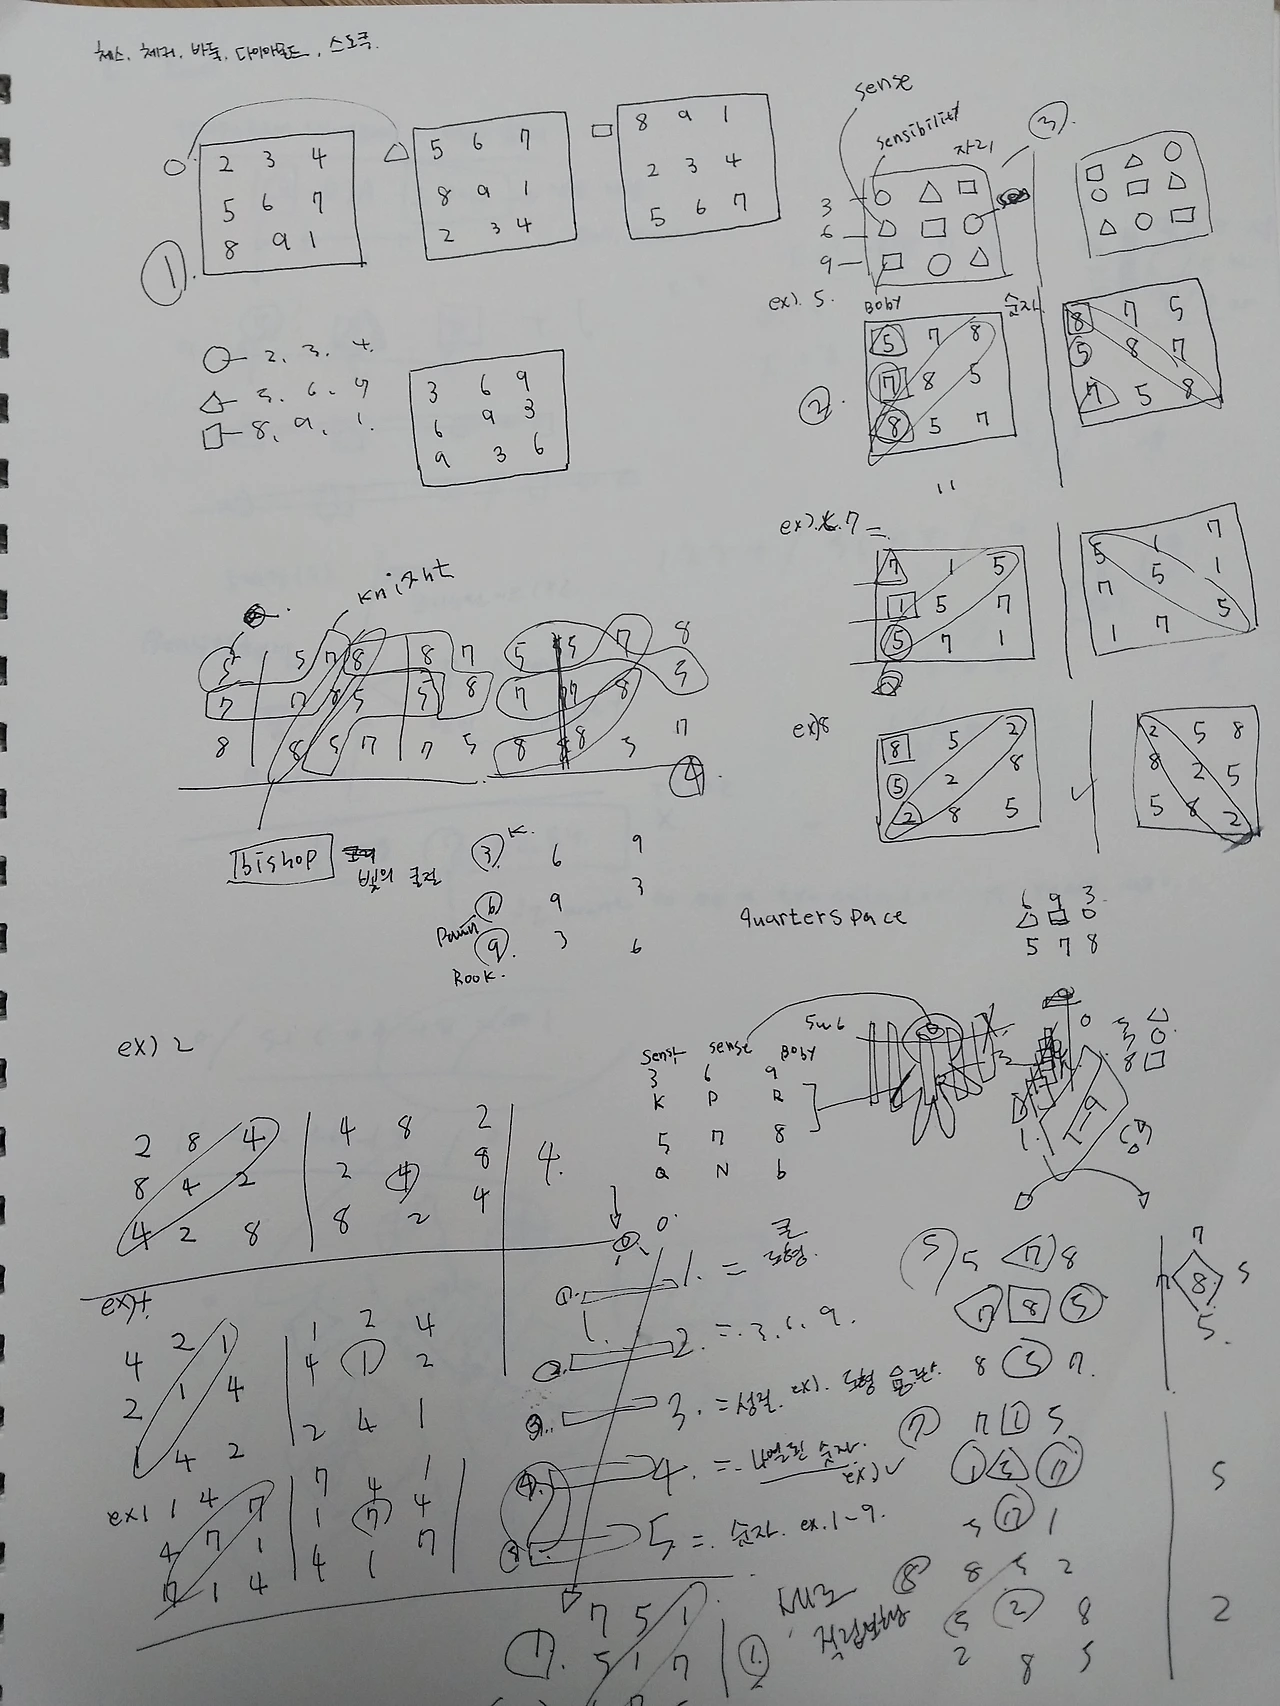 체스. 체커. 바둑. 다이아몬드. 스도쿠.
2 3 4
5 6 7
8 9 1
5 6 7
8 9 1
2 3 4
8 9 1
2 3 4
5 6 7
sense
sensibility
자리
3
6
9
①
③
2. 3. 4.
8. 9. 1.
3 6 9
6 9 3
9 3 6
ex). 5.
BOBY
숫자
②
5 7 8
7 8 5
8 5 7
8 7 5
5 8 7
7 5 8
7 1 5
1 5 7
5 7 1
5 1 7
7 5 1
1 7 5
ex)8
8 5 2
5 2 8
2 8 5
2 5 8
8 2 5
5 8 2
knight
5 5 7 8 8 7 5 5 7 8
7 7 8 5 5 8 7 7 8 5
8 8 5 7 7 5 8 8 8 5 7
④
bishop
빛의 굴절
K.
3. 6 9
6 9 3
Pawn
9. 3 6
ROOK.
quarterspace
6 9 3
5 7 8
ex) 2
2 8 4
8 4 2
4 2 8
4 8 2
2 4 8
8 2 4
4.
sense
BOBY
3 6 9
K P R
5 7 8
Q N b
1-9
0.
1. =
도형.
2 =. 3. 6. 9.
3. = 성질. ex). 도형
4. =. 나열된 숫자.
ex)
5 =. 숫자. ex. 1~9.
4 2 1
2 1 4
1 4 2
1 2 4
4 1 2
2 4 1
ex1
1 4 7
4 7 1
7 1 4
7 4 1
1 7 4
4 1 7
5 5 7 8
7 8 5
8 5 7.
7
7 8. 5
5.
7 7 1 5
1 5 7
5 7 1
5
8 8 5 2
5 2 8
2 8 5
2
1. 7 5 1
5 1 7